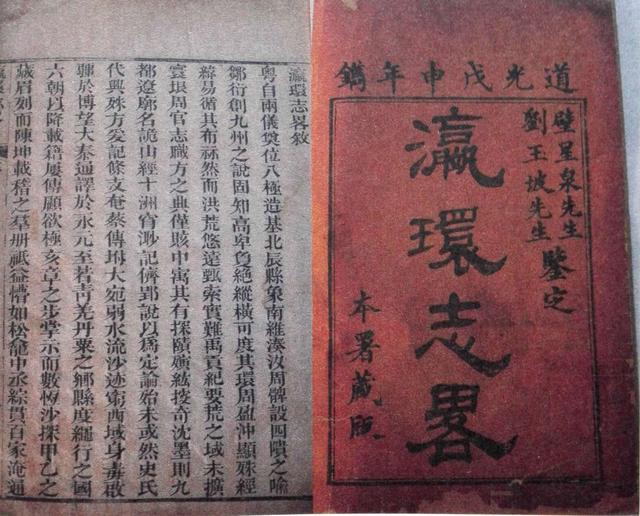 道光戊申年鐫
壁星泉先生
劉玉坡先生
鑒定
瀛環志畧
本署藏版
瀛環志畧敘
粵自兩儀奠位八極造基北辰縣象南維湊汝周髀設四隤之喻
鄒衍創九州之說固知高卑負絕縱橫可度其環周盈沖顯殊經
緯易循其布祘然而洪荒悠遠甄索實難禹貢紀要荒之域未擴
寰垠周官志職方之典僅賅中寓其有探賾紘奇沈墨則九
都遼廓名詭山經十洲窅渺記儕郢說以爲定論始未或然史氏
代興殊方爰記條支奄蔡傳坿大宛弱水流沙迹窮西域身毒啟
驛於博望大秦通譯於永元至若靑羌丹粟之鄉縣度繩行之國
六朝以降載籍屢傳顧欲極亥章之步掌示而數恆沙探甲乙之
藏眉列而陳坤載稽之羣册祗益懵如松龕中丞綜貫百家淹通